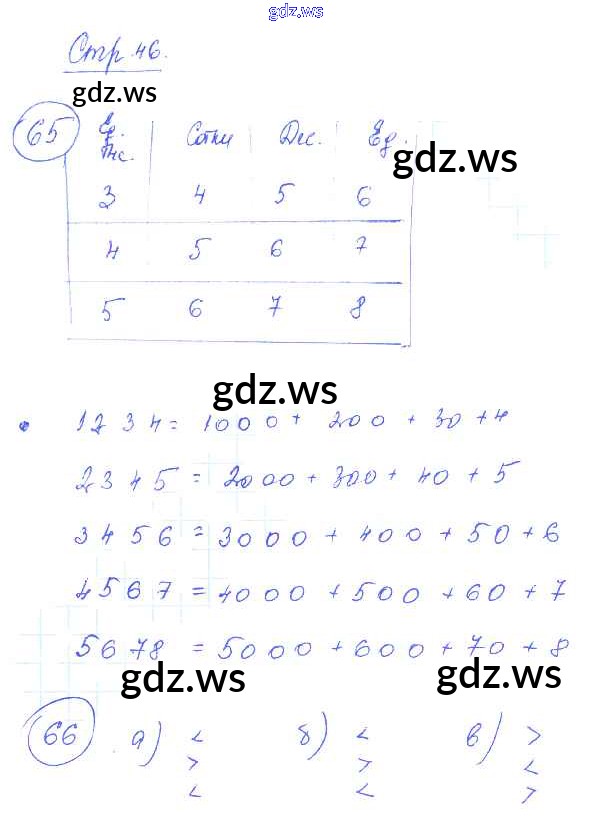 gdz.ws
Стр. 46.
gdz.ws
65 Ед. тыс. Сотни Дес. Ед.
gdz.ws
3 4 5 6
4 5 6 7
5 6 7 8
gdz.ws
• 1234 = 1000 + 200 + 30 + 4
2345 = 2000 + 300 + 40 + 5
3456 = 3000 + 400 + 50 + 6
4567 = 4000 + 500 + 60 + 7
5678 = 5000 + 600 + 70 + 8
gdz.ws gdz.ws
66 а) < б) < в) >
> > <
< < >
gdz.ws gdz.ws